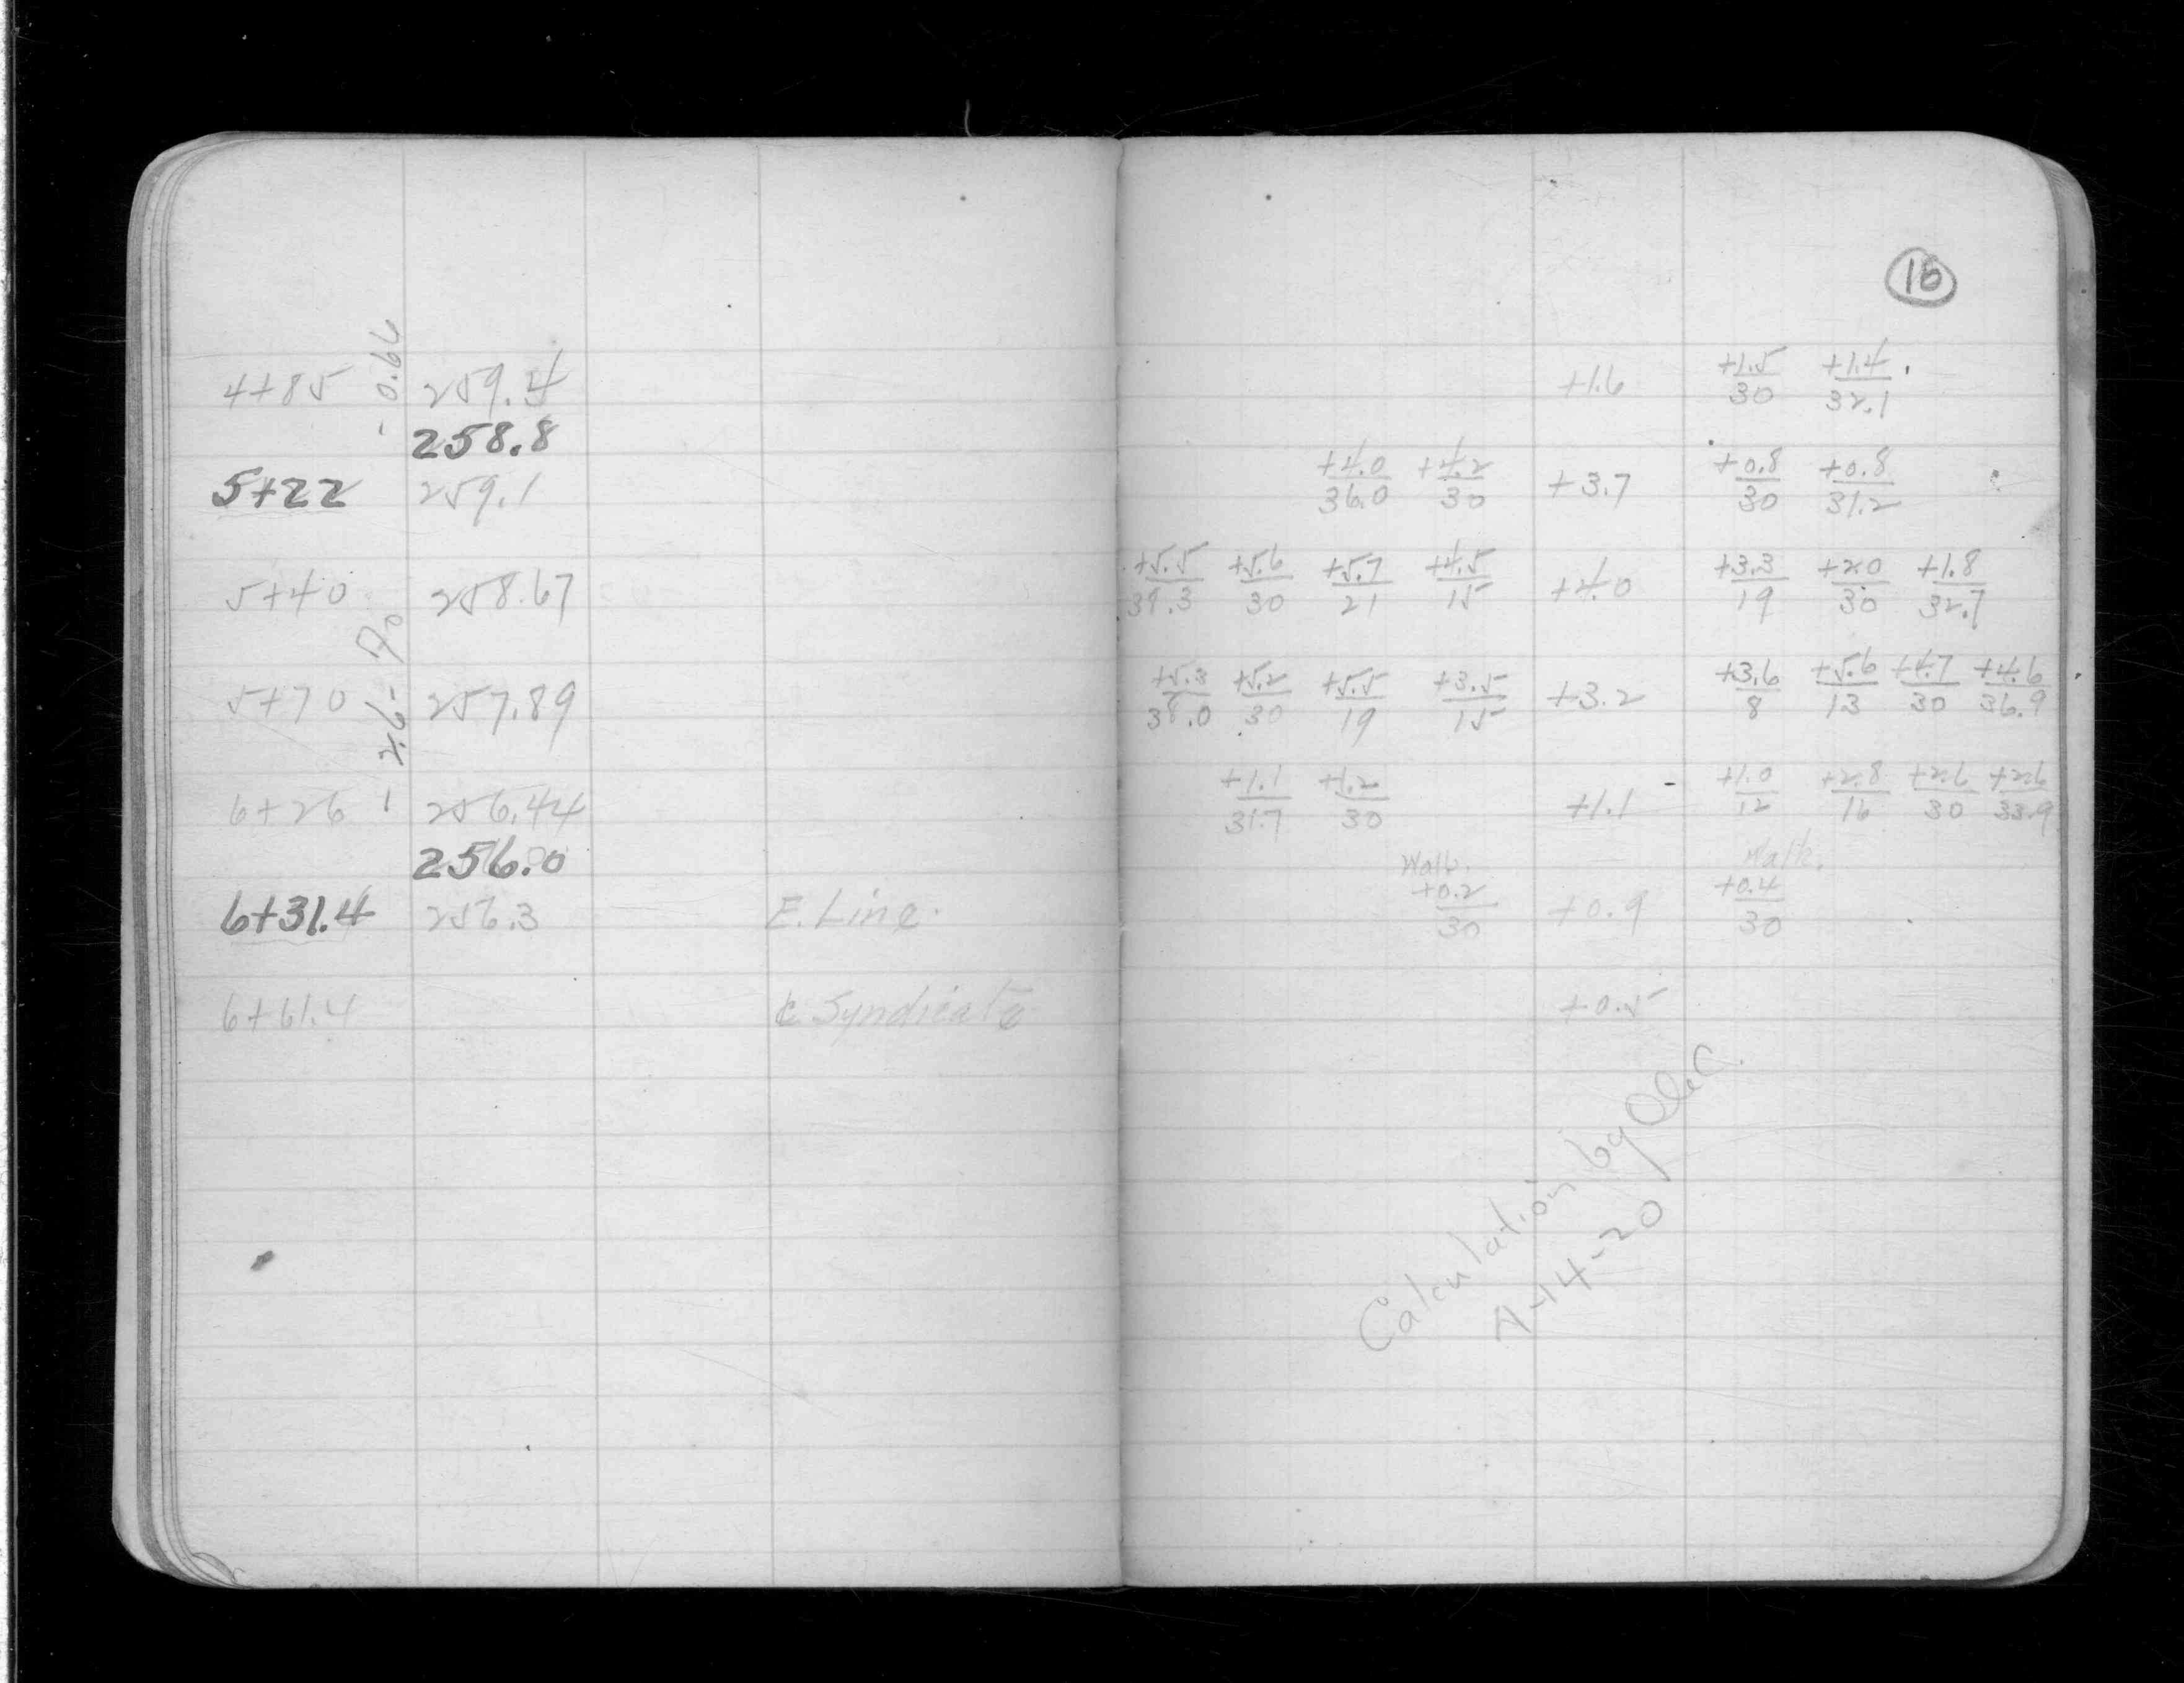 16
- 0.66
4+85 259.4 +1.6 +1.5/30 +1.4/32.1
258.8
5+22 259.1 +4.0/36.0 +4.2/30 +3.7 +0.8/30 +0.8/31.2
5+40 258.67 +5.5/39.3 +5.6/30 +5.7/21 +4.5/15 +4.0 +3.3/19 +2.0/30 +1.8/32.7
- 2.6- %
5+70 257.89 +5.3/38.0 +5.2/30 +5.5/19 +3.5/15 +3.2 +3.6/8 +5.6/13 +4.7/30 +4.6/36.9
6+26 256.44 +1.1/31.7 +1.2/30 +1.1 +1.0/12 +2.8/16 +2.6/30 +2.6/33.9
256.0 Walk. Walk.
6+31.4 256.3 E. Line. +0.2/30 +0.9 +0.4/30
6+61.4 ¢ Syndicate +0.5
Calculation by
-14-20